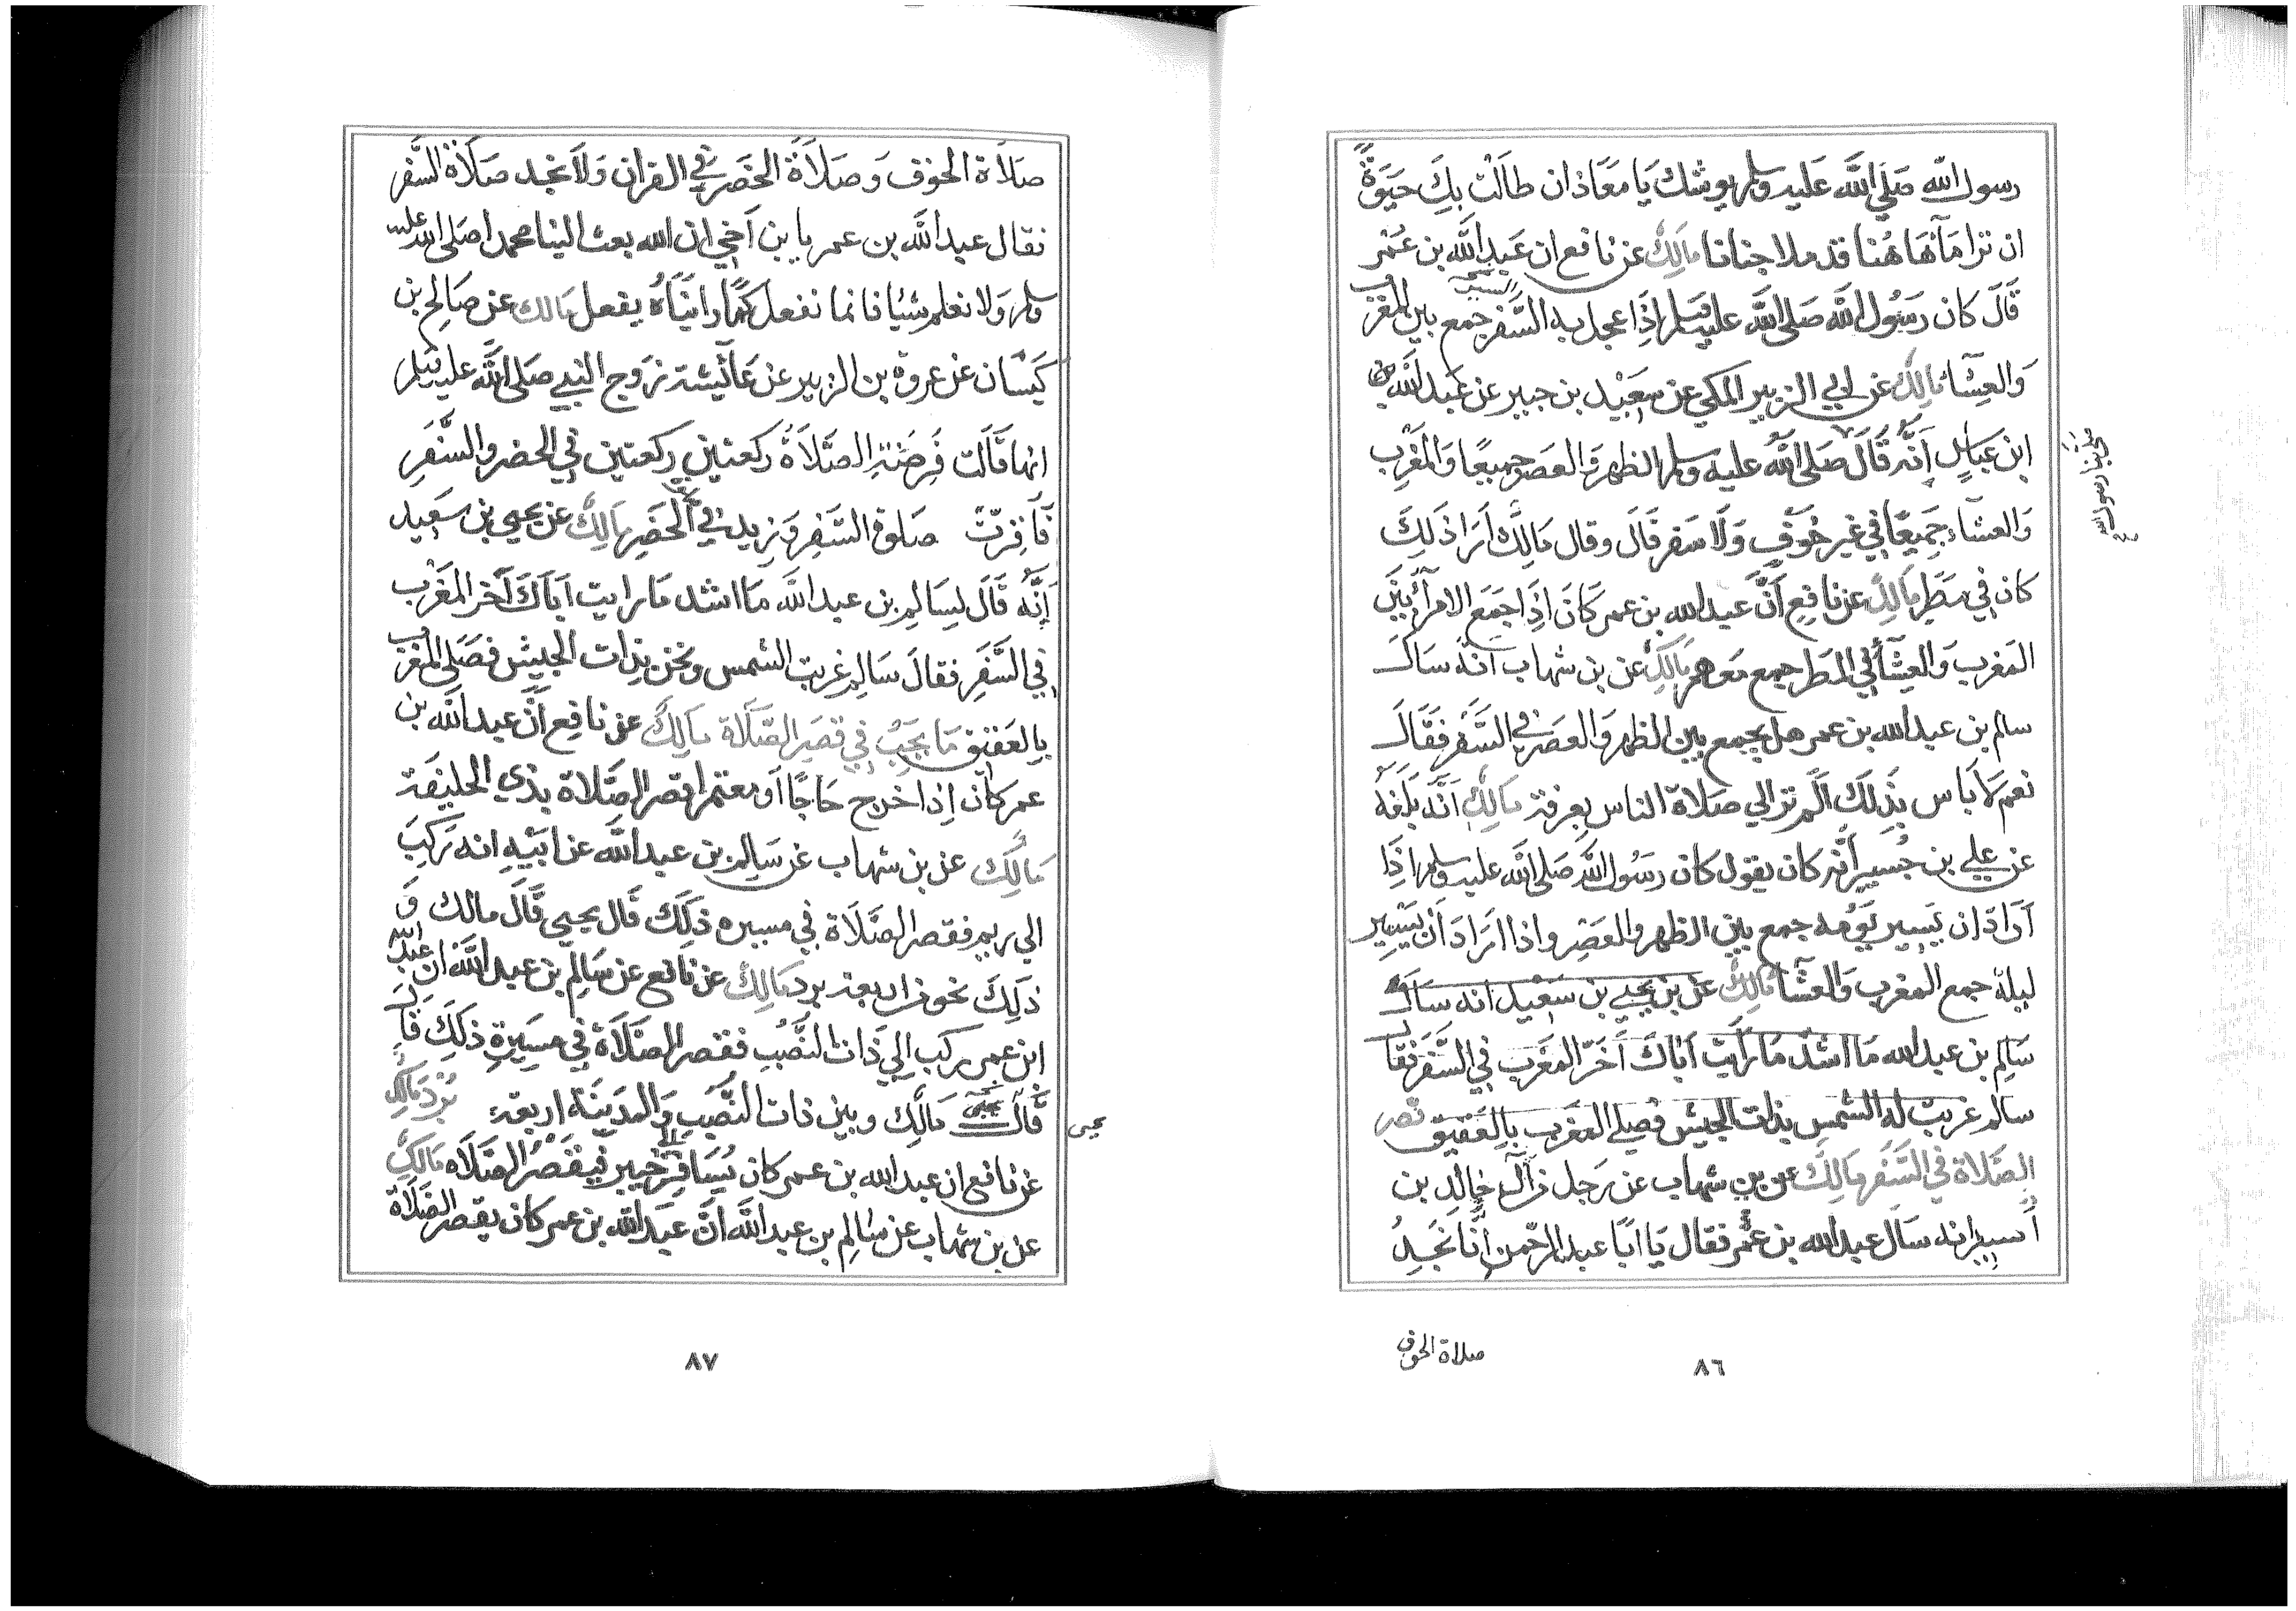 رسول الله صَلَي اللَّه عَليه وسلم يوشك يَا معَاذ ان طَالَتْ بِكَ حَيَوةٌ
ان ترا مَآ هَا هُنا قد ملا جنانا مَالِكٌ عن نافع ان عَبد اللَّه بن عُمر
قَالَ كان رَسُول اللَّه صَلى اللَّه عليه وسلم اذَا عجل به السَّفر جمع بين المغرب
السير
وَالعِشَا مَالِكٌ عن ابي الزبير المكي عن سَعِيْد بن جبير عن عَبد اللَّه بن
ابن عَباسٍ اَنَّه قَالَ صَلى اللَّه عليه وسلم الظهر وَالعَصر جميعًا وَالمَغْرِب
صلى بنا رسول الله
وَالعشاء جَمِيعًا في غير خَوْفٍ وَلَا سَفر قَالَ وقال مَالِكٌ اَرَا ذَلِكَ
كان في مَطَر مَالِكٌ عن نافِع اَنَّ عَبد الله بن عمر كَانَ اذِا جَمَعَ الامرآءُ بَيْنَ
المغرب وَالعِشَآء في المَطَر جمع مَعَهم مَالِكٌ عن بن شهاب انَّه سَاَل
سالم بن عبد الله بن عمر هل يجمع بين الظهر وَالعَصر في السَّفر فَقَالَ
نعم لا بَاس بِذَلكَ اَلَم تر الي صَلاة الناس بعرفة مَالِكٌ اَنَّه بَلَغَه
عن علي بن حُسين اَنَّه كان يقول كان رَسُول اللَّه صَلى اللَّه عليه وسلم اذِا
اَرَادَ ان يَسِير يَوْمه جمع بين الظهر والعَصْر واذا ارَادَ اَن يَسِير
ليلهُ جمع المغرب وَالعشَآء مَالِكٌ عن بن يَحيي بن سَعِيْد انه سَاَل
سَالِم بن عبد الله مَا اشَدّ مَا رَاَيْت اَبَاكَ اَخَّر المَغرب في السَّفر فقال
سالم غربت له الشمس بذات الجيش فصلي المغرب بالعَقيق قصر
الصَّلاة في السَّفر مَالِكٌ عن بن شهاب عن رَجل من آل خالد بن
اسيد انه سَاَل عبد الله بن عُمر فقال يَا اَبَا عبد الرّحمن اِنَّا نَجِدُ
صلاة الخوف
٨٦
صَلاَة الخوف وَصَلاَةَ الحَضَر في القران وَلاَ نجد صَلَاة السَّفر
فقال عبد اللَّه بن عمر يا بن اَخي ان الله بعث الينا محمدا صَلى الله عليه
وسلم وَلا نعلم شيا فانما نفعل كمَا راَيْنَاهُ يفعل مَالك عن صَالح بن
كَيْسَان عن عروة بن الزبير عن عَآئيشة زَوج النبي صَلى اللَّه عليه وسلم
انها قَالَت فُرِضَتْ الصَّلَاةُ ركعتين ركعتين في الحضر والسَّفَرِ
فَاَقِرّتْ صَلوة السَّفر وَزيد في الحَضَر مَالِكٌ عن يحيي بن سَعِيد
اَنَّه قَالَ لِسَالِم بن عبد اللَّه مَا اشد مَا رايت اَبَاكَ اَخر المَغْرب
في السَّفَر فقالَ سَالِم غربت الشمس ونحن بذات الجيش فصَلي المغرب
بالعَقيق مَا يَجِبُ في قَصْر الصَّلَاة مَالِكٌ عن نافِع اَنَّ عبد اللَّه بن
عمر كَان اِذا خرج حَاجًا اَو معتمرا قصر الصَّلاة بذي الحليفة
مَالِكٌ عن بن شهاب عن سَالم بن عبد اللَّه عن ابَيْه انه رَكِبَ
الي ريم فقصر الصَّلَاة في مسيره ذَلِكَ قَال يحيي قَالَ مالك وَ
ذَلِكَ نحو من اربعة برد مَالِكٌ عن نافع عن سَالِم بن عبد اللَّه ان عبد الله
ابن عمر ركب الي ذَات النُّصُب فقصر الصَّلَاةَ في مَسِيرِهِ ذلكَ قَالَ
قَالَ يحيى مَالِك وبين ذات النُّصب وَالمَدِينَة اربعَة بُرُد مَالِك
يحيى
عن نافع ان عبد الله بن عمر كان يُسَافِر الي خيبر فيَقْصُر الصَّلَاه مَالِكٌ
عن بن شهاب عن سَالِم بن عبد اللَّه اَنَّ عَبد اللَّه بن عمر كان يقصر الصَّلَاة
٨٧